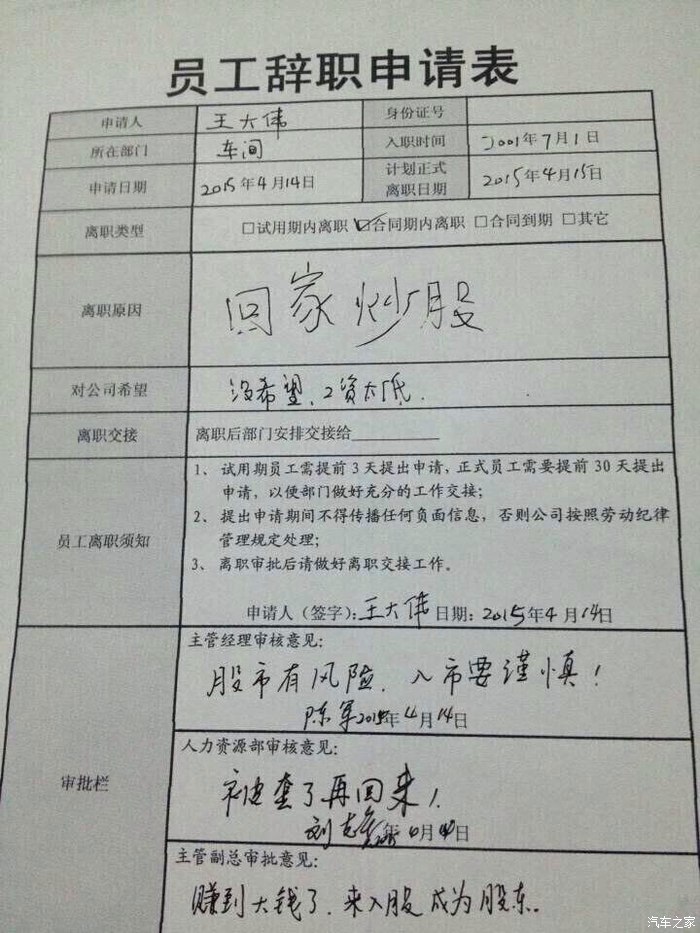 员工辞职申请表
申请人 王大伟 身份证号
所在部门 车间 入职时间 2001年7月1日
申请日期 2015年4月14日 计划正式离职日期 2015年4月15日
离职类型 □试用期内离职 ☑合同期内离职 □合同到期 □其它
离职原因 回家炒股
对公司希望 没希望、工资太低.
离职交接 离职后部门安排交接给__________
员工离职须知
1、试用期员工需提前3天提出申请,正式员工需要提前30天提出
申请,以便部门做好充分的工作交接;
2、提出申请期间不得传播任何负面信息,否则公司按照劳动纪律
管理规定处理;
3、离职审批后请做好离职交接工作。
申请人(签字):王大伟 日期:2015年4月14日
审批栏
主管经理审核意见:
股市有风险.入市要谨慎!
陈军 2015年4月14日
人力资源部审核意见:
被套了再回来!
刘 年 月 日
主管副总审批意见:
赚到大钱了.来入股成为股东。
汽车之家